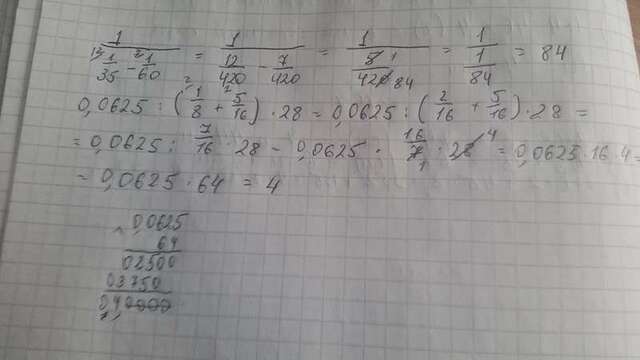 1/(¹²1/35 - ⁷1/60) = 1/(12/420 - 7/420) = 1/(5¹/420 84) = 1/(1/84) = 84
0,0625 : (²1/8 + ¹5/16) · 28 = 0,0625 : (2/16 + 5/16) · 28 =
= 0,0625 : 7/16 · 28 = 0,0625 · 16/7₁ · 28⁴ = 0,0625 · 16 · 4 =
= 0,0625 · 64 = 4
0,0625
64
02500
03750